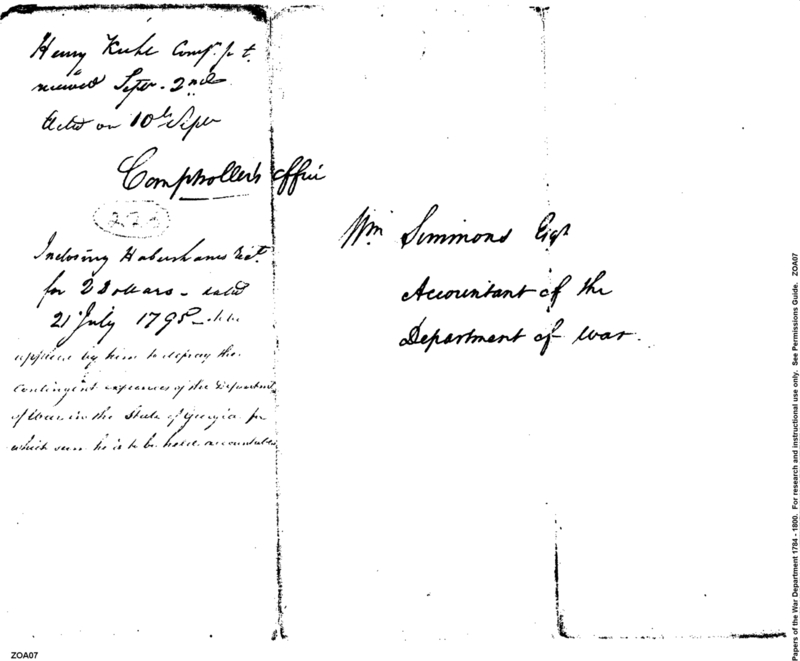 Henry Kuhl Comp. p t.
received Septr. 2nd
Acted on 10th Sepr
Comptroller's Office
222
Inclosing Habershams Rect.
for 2 Dollars - dated
21 July 1795 - to be
applied by him to defray the
Contingent expences of the Department
of War in the State of Georgia for
which sum he is to be held accountable
Wm Simmons Esqr
Accountant of the
Department of War.
ZOA07
Papers of the War Department 1784 - 1800. For research and instructional use only. See Permissions Guide. ZOA07